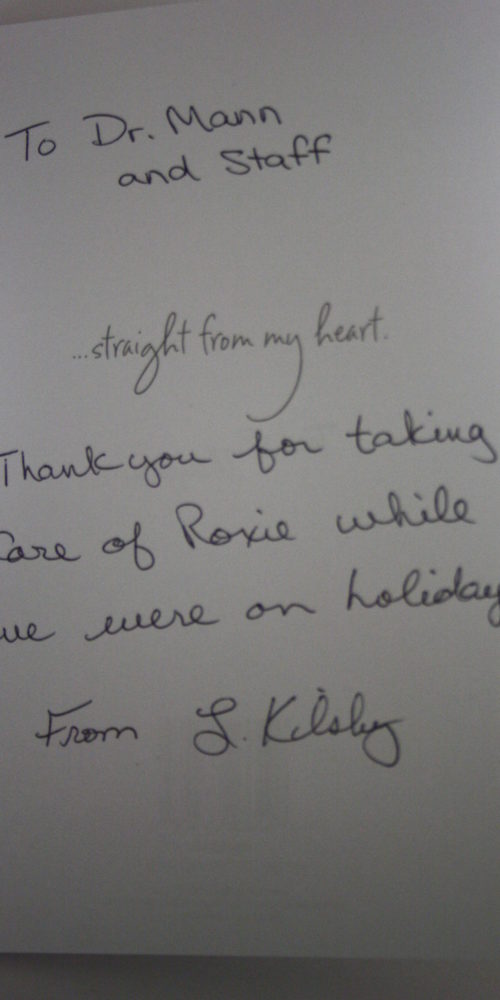 To Dr. Mann
and Staff
...straight from my heart.
Thank you for taking
Care of Roxie while
we were on holiday
From L. Kilsby